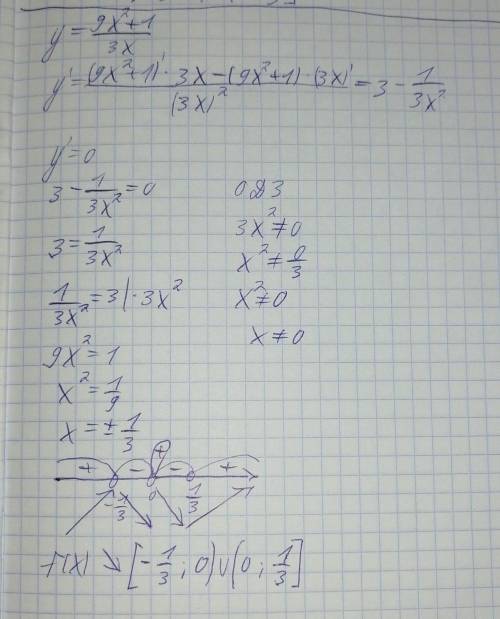 y = (9x²+1)/(3x)
y' = ((9x²+1)' · 3x − (9x²+1) · (3x)')/(3x)² = 3 − 1/(3x²)
y' = 0
3 − 1/(3x²) = 0
3 = 1/(3x²)
1/(3x²) = 3 |· 3x²
9x² = 1
x² = 1/9
x = ± 1/3
ОДЗ
3x² ≠ 0
x² ≠ 0/3
x² ≠ 0
x ≠ 0
+ − + − +
−1/3 0 1/3
f(x) ↘ [−1/3; 0) ∪ (0; 1/3]